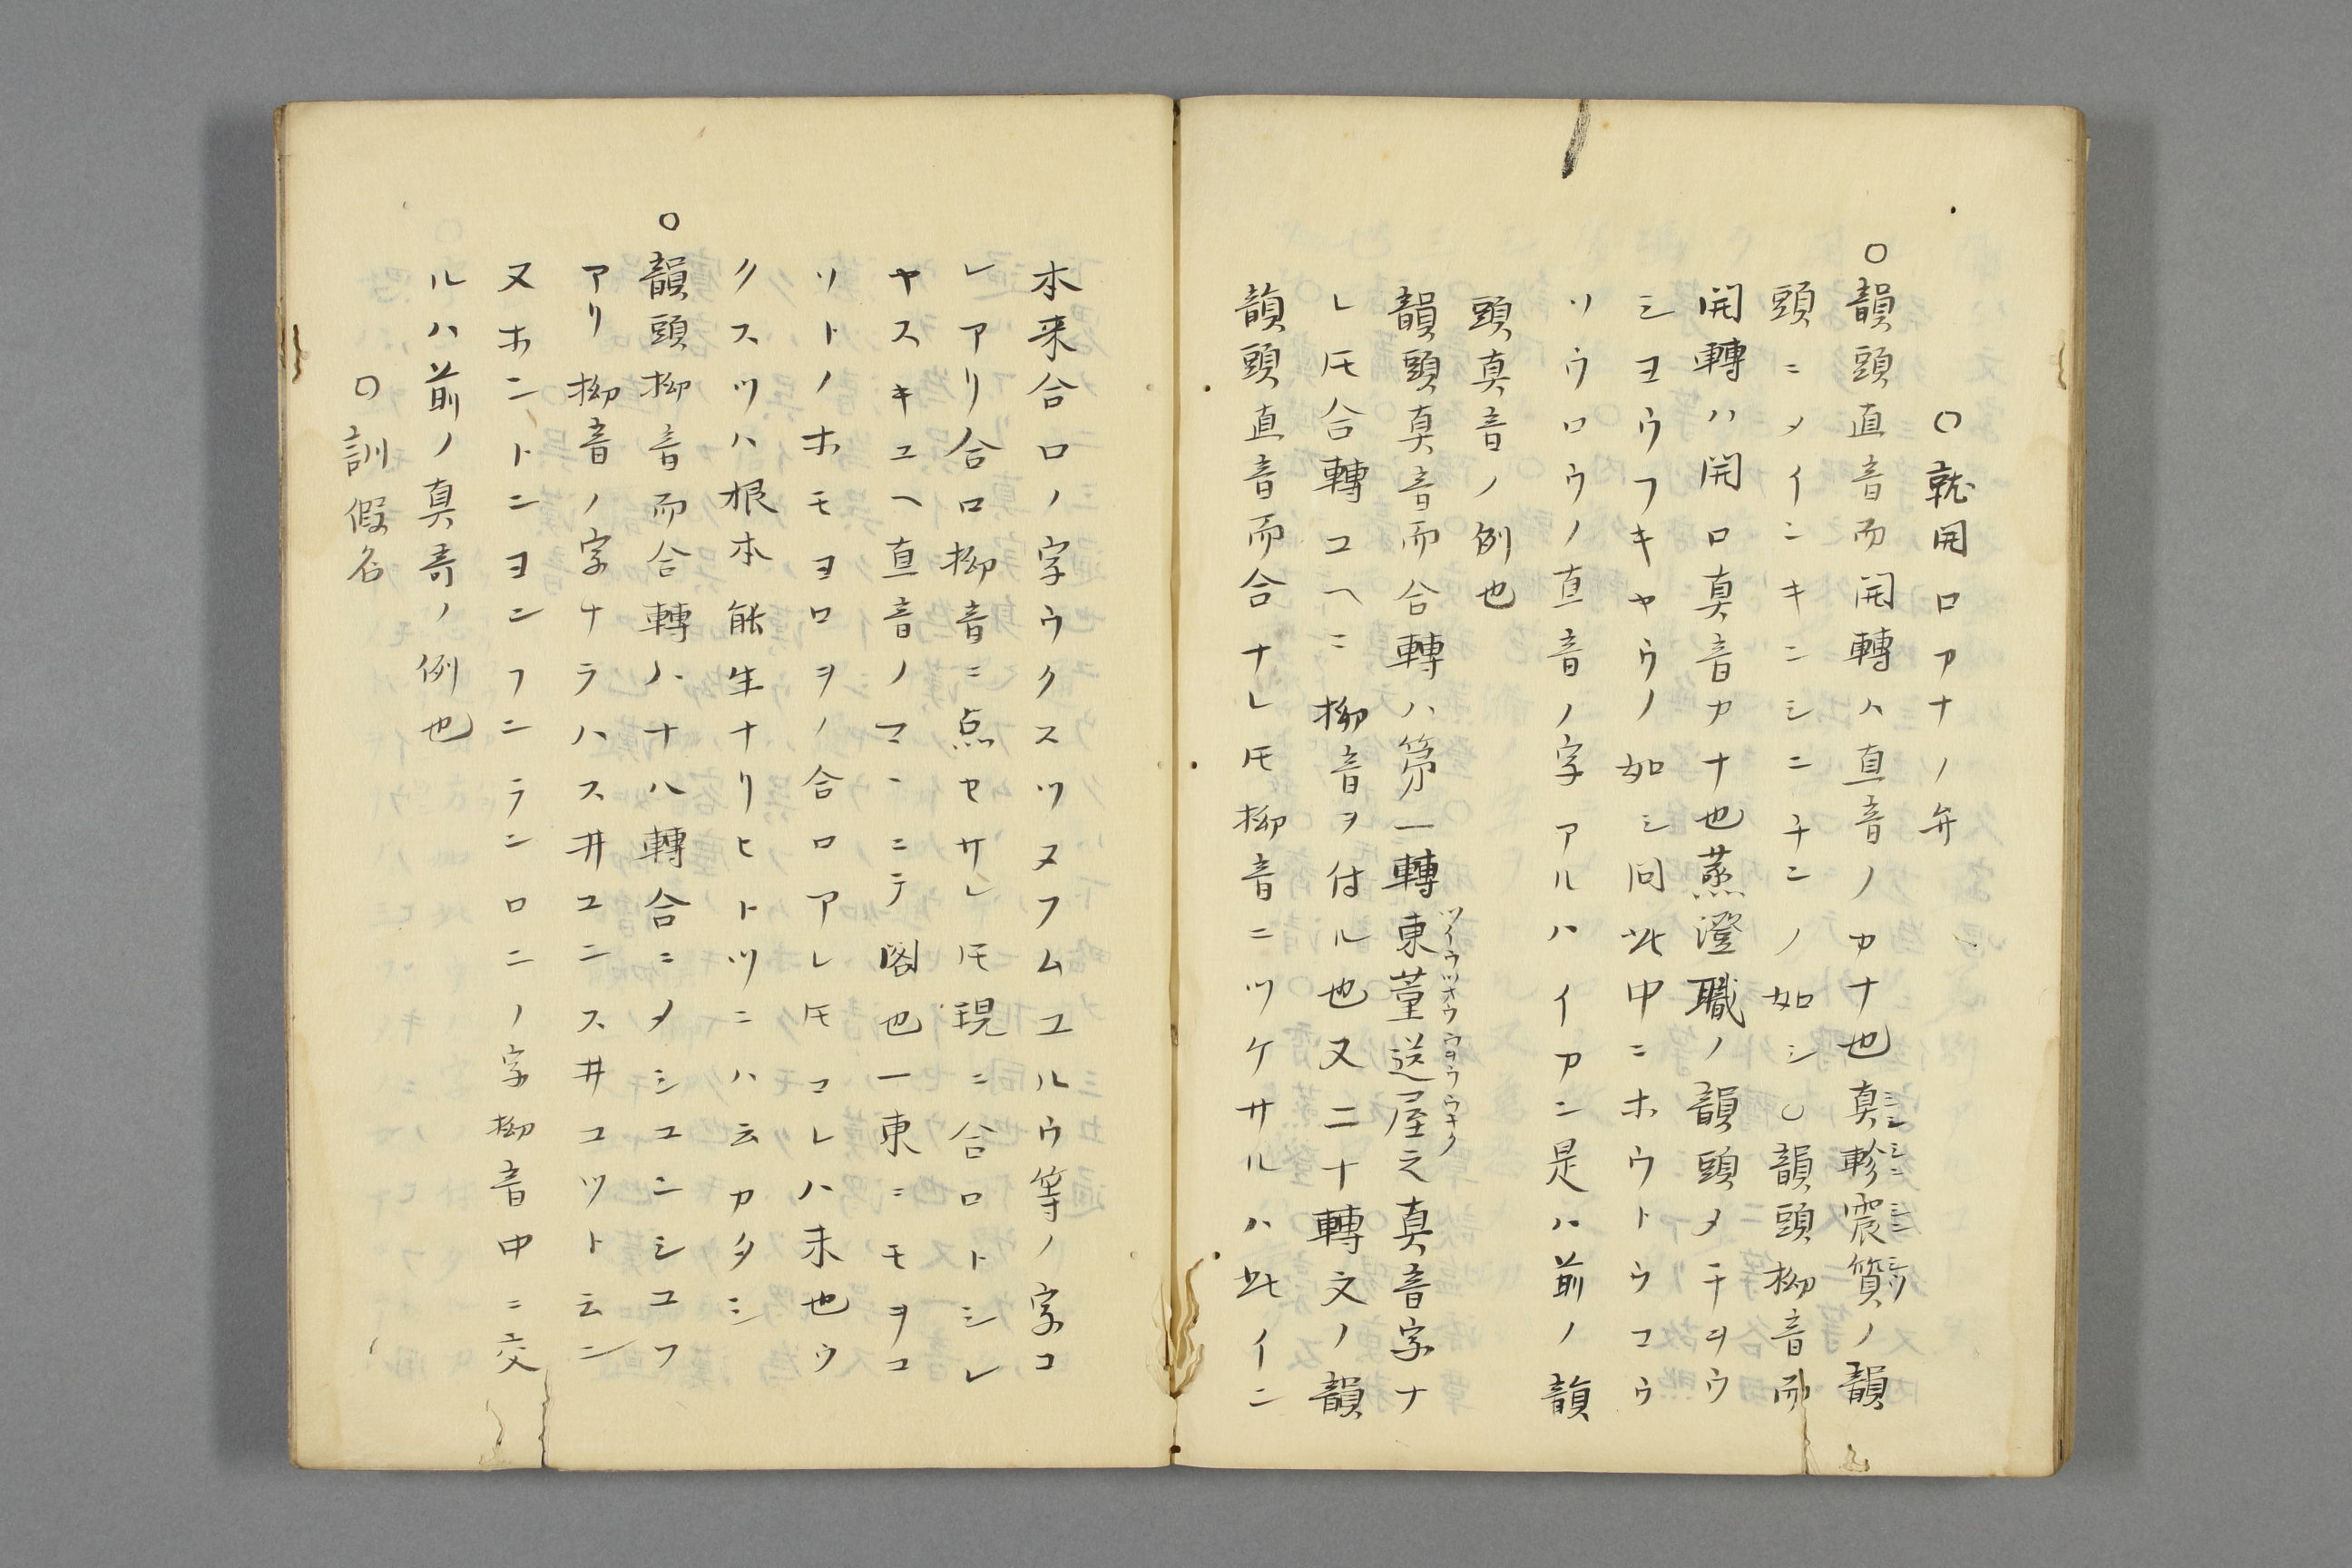 〇就開口アナノ弁
〇韻頭直音而開轉ハ直音ノカナ也真軫震質ノ韻
シンシンシンシツ
頭ニメイニンキニシニチニノ如シ〇韻頭拗音而
開轉ハ開口真音カナ也蒸澄職ノ韻頭メチヲウ
シヨウフキヤウノ如シ問此中ニホウトウコウ
ソウロウノ直音ノ字アルハイアン是ハ前ノ韻
頭真音ノ例也
韻頭真音而合轉ハ第一轉東董送屋之真音字ナ
ツイウツオウウヲウウオク
レ𪜈合轉ユヘニ拗音ヲ付ル也又二十轉文ノ韻
韻頭直音而合ナレ𪜈拗音ニツケサルハ此イニ
本来合口ノ字ウクスツヌフムユルウ等ノ字コ
レアリ合口拗音ニ点セサレ𪜈現ニ合口トシレ
ヤスキユヘ直音ノマヽニテ閣也一東ニモヲコ
ソトノホモヨロヲノ合口アレ𪜈コレハ末也ウ
クスツハ根本能生ナリヒトツニハ云カタシ
〇韻頭拗音而合轉ハ十八轉合ニメシユンシユフ
アリ拗音ノ字ナラハス井ユニス井コツト云ン
又ホントニヨンフニラニロニノ字拗音中ニ交
ルハ前ノ真音ノ例也
〇訓假名